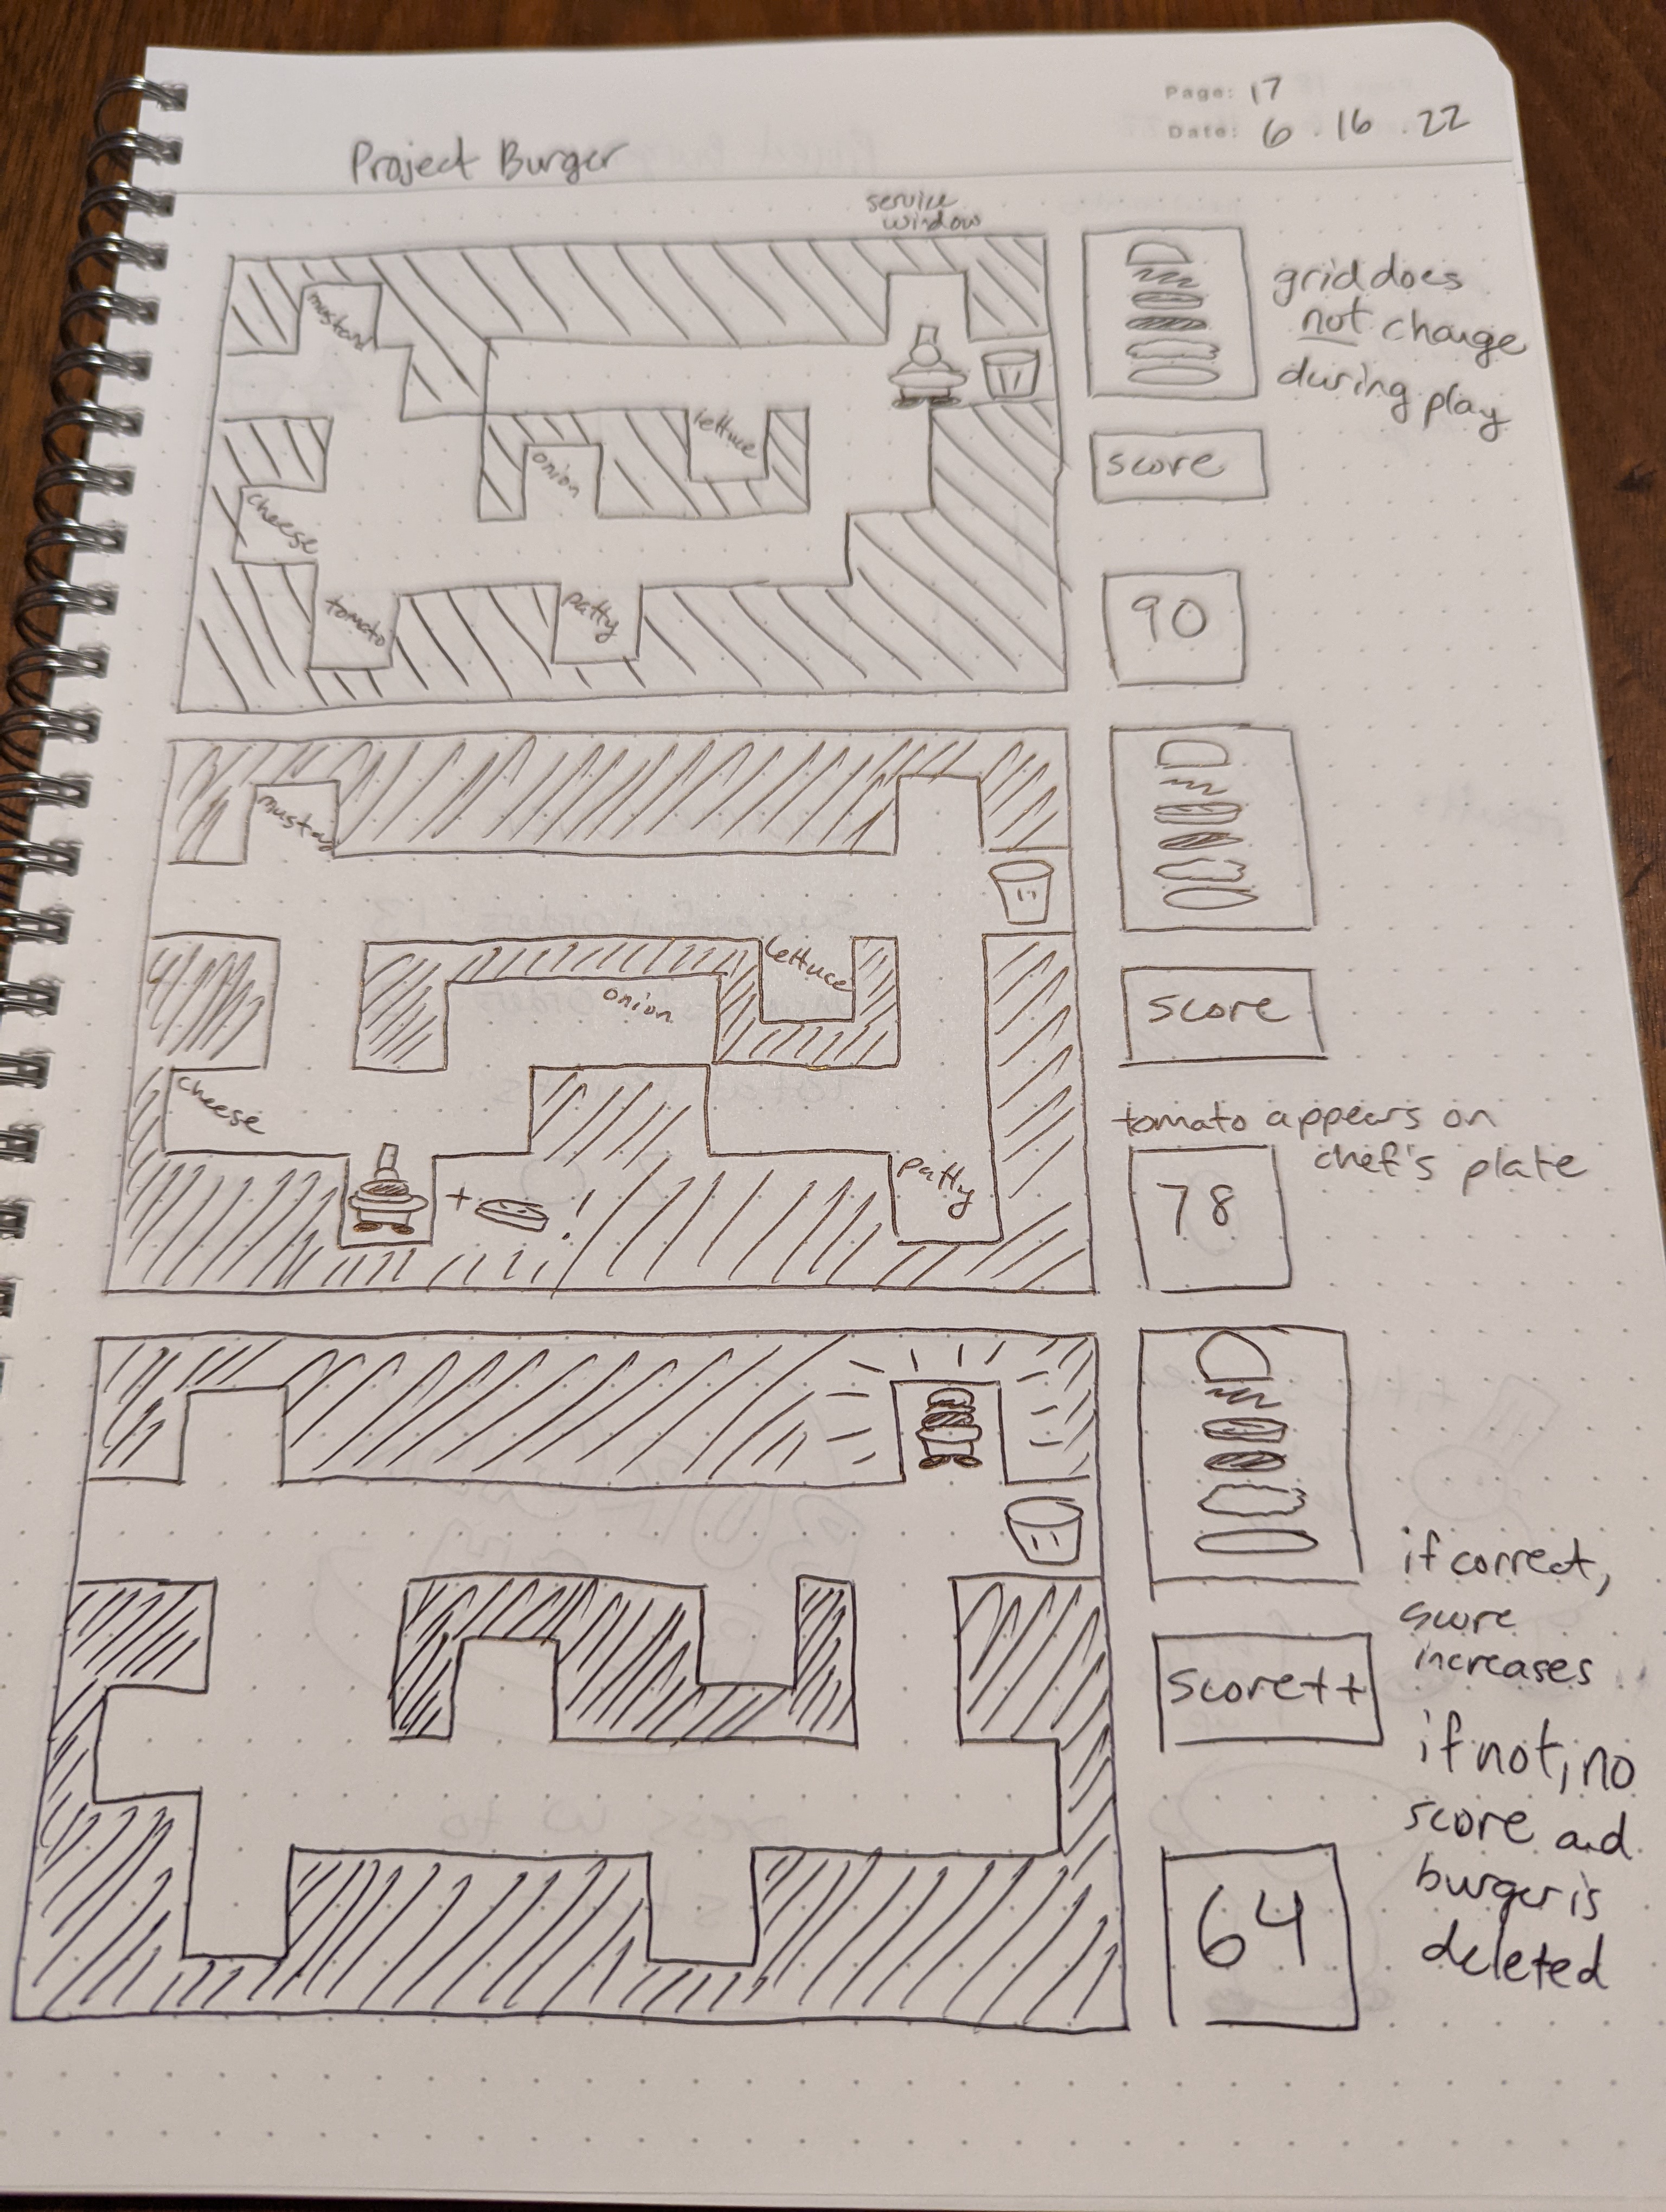 Page: 17
Date: 6 . 16 . 22
Project Burger
service
window
mustard
lettuce
onion
cheese
tomato
patty
grid does
not change
during play
score
90
mustard
lettuce
onion
cheese
patty
+ !
score
tomato appears on
chef's plate
78
score++
if correct,
score
increases
if not, no
score and
burger is
deleted
64